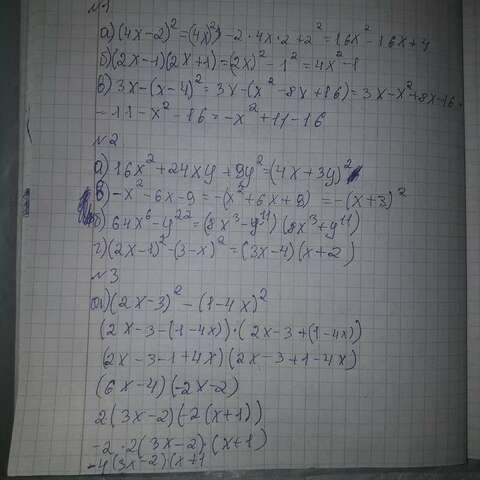 №1
а) (4x-2)² = (4x)² - 2·4x·2 + 2² = 16x² - 16x + 4
б) (2x-1)(2x+1) = (2x)² - 1² = 4x² - 1
в) 3x-(x-4)² = 3x-(x²-8x+16) = 3x-x²+8x-16 =
- 11 - x² - 16 = -x² + 11 - 16
№2
а) 16x² + 24xy + 9y² = (4x+3y)²
в) -x² - 6x - 9 = -(x² + 6x + 9) = -(x+3)²
б) 64x⁶ - y²² = (8x³ - y¹¹)(8x³ + y¹¹)
г) (2x-1)² - (3-x)² = (3x-4)(x+2)
№3
а) (2x-3)² - (1-4x)²
(2x-3-(1-4x))·(2x-3+(1-4x))
(2x-3-1+4x)(2x-3+1-4x)
(6x-4)(-2x-2)
2(3x-2)(-2(x+1))
-2·2(3x-2)·(x+1)
-4(3x-2)(x+1